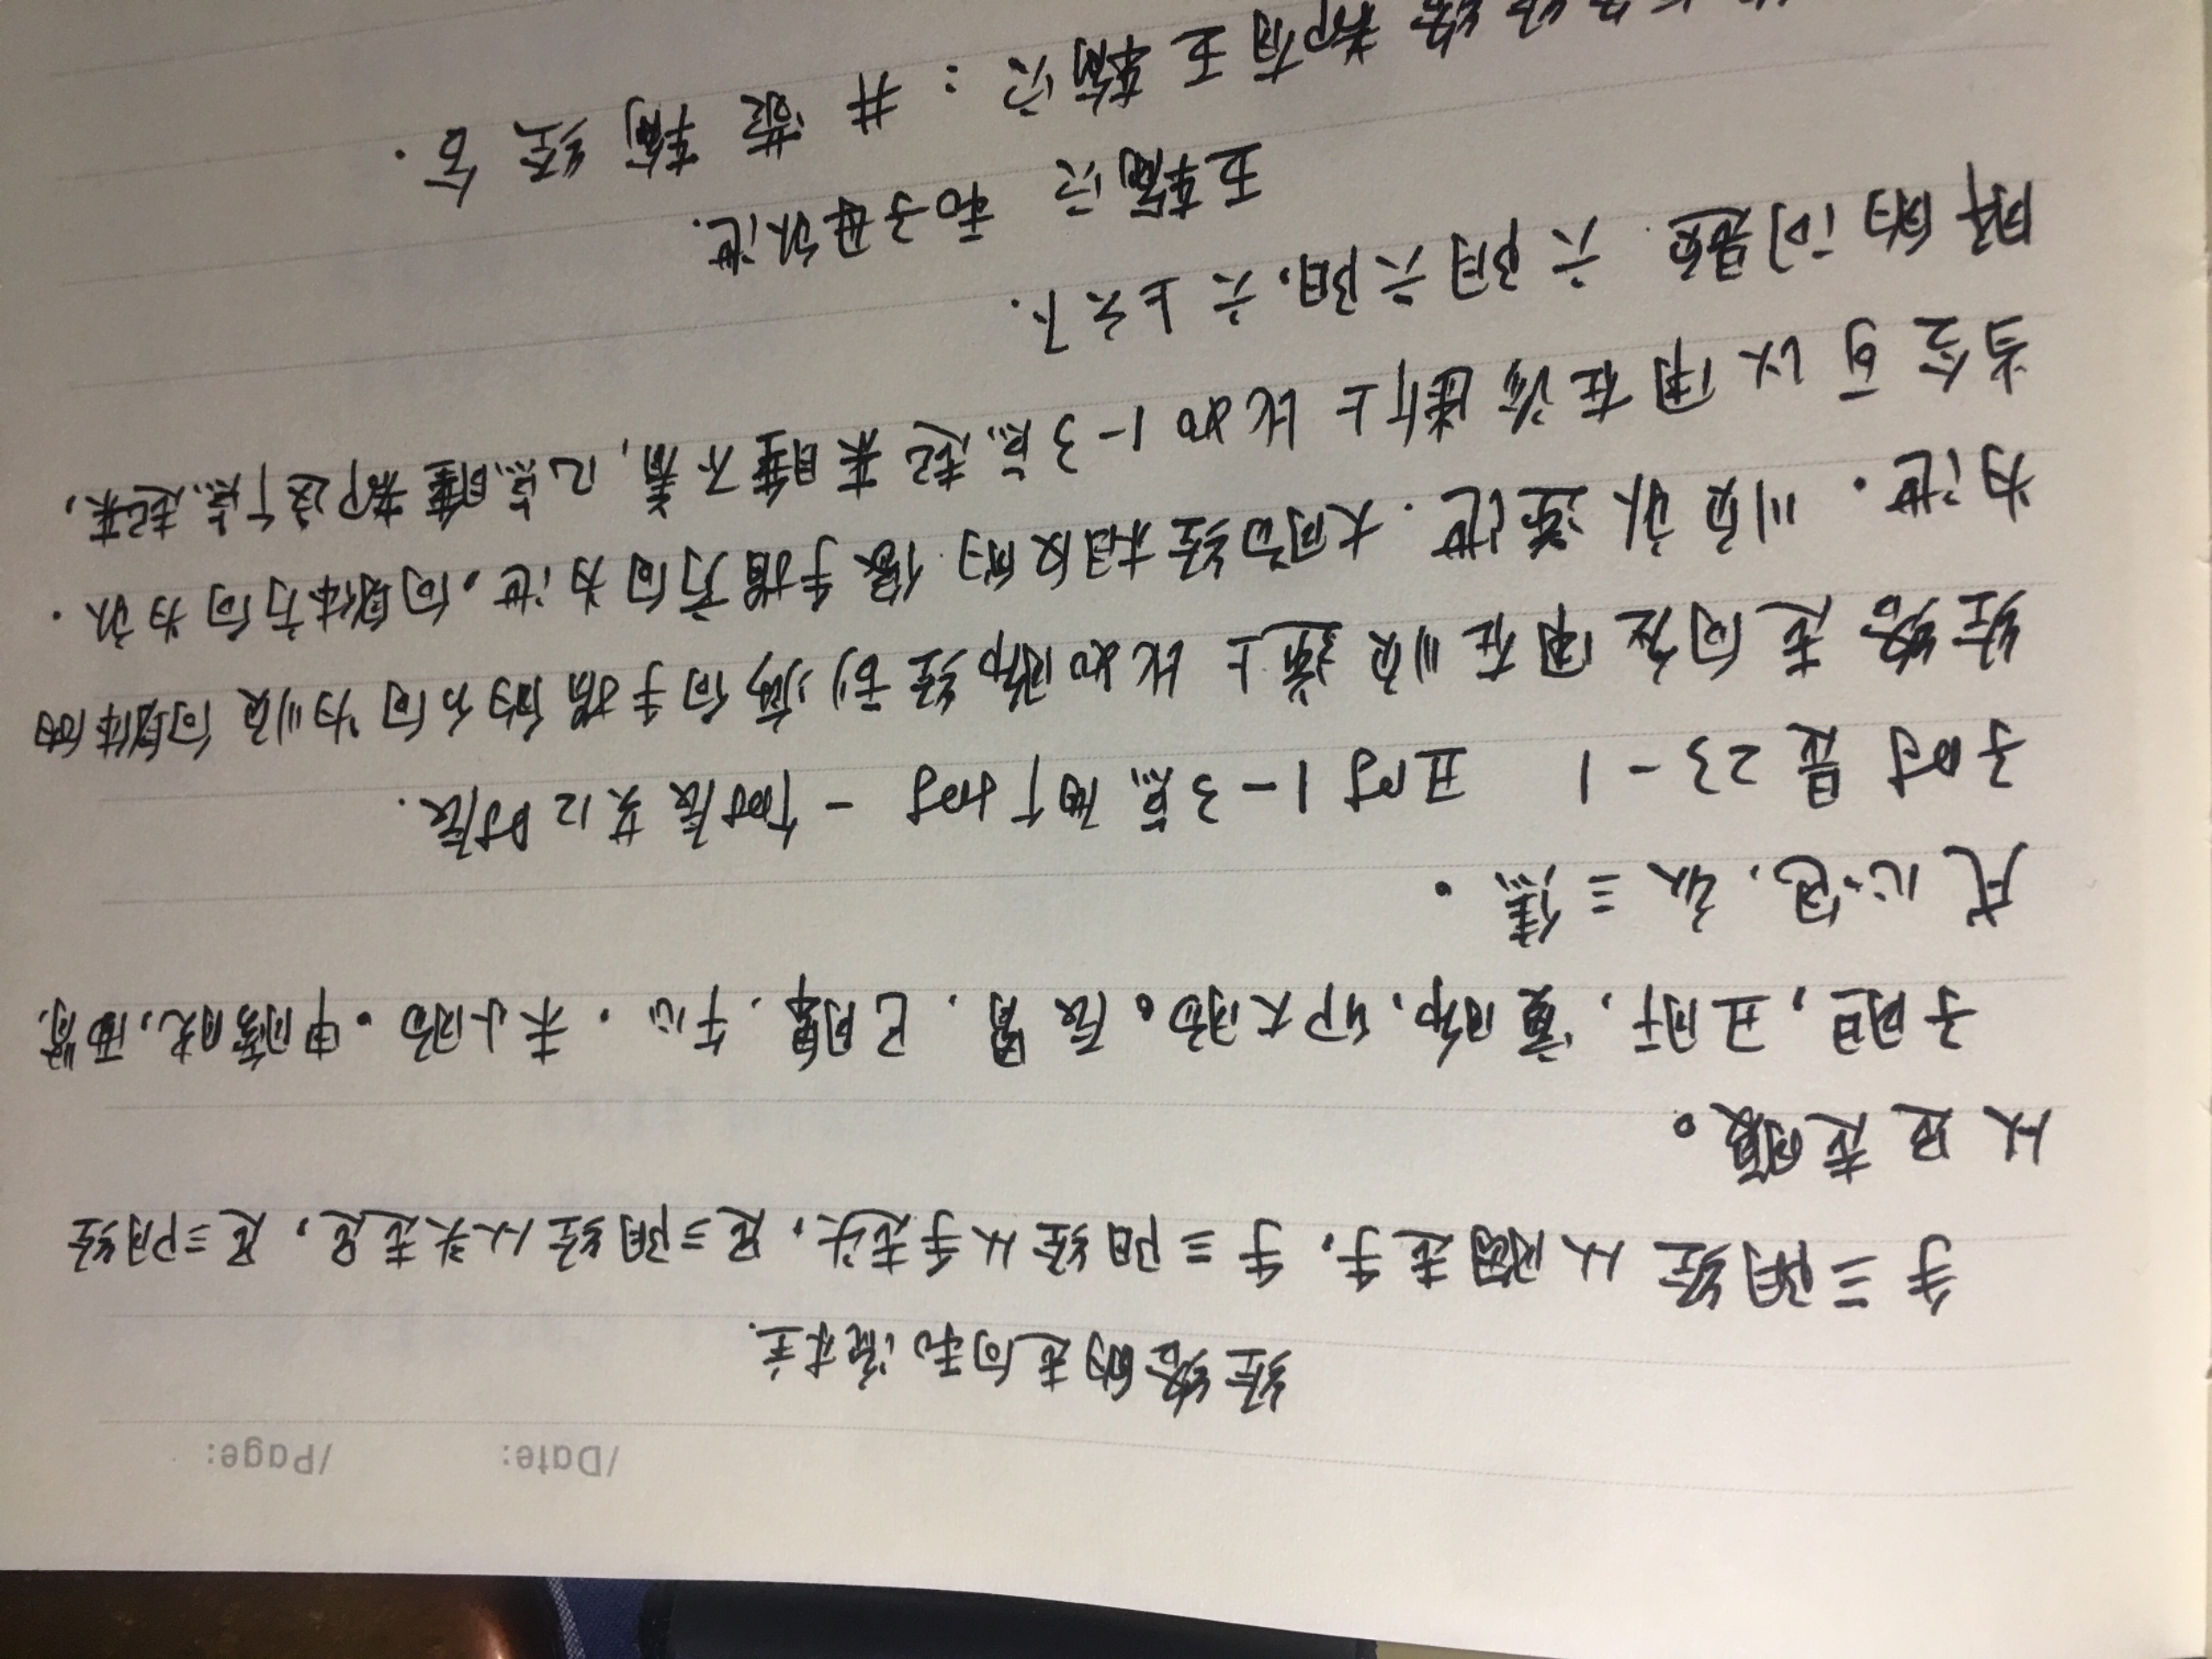 /Date: /Page:
经络的走向和流注.
手三阴经从胸走手,手三阳经从手走头,足三阳经从头走足,足三阴经
从足走腹。
子胆,丑肝,寅肺,卯大肠。辰胃.巳脾.午心.未小肠.申膀胱,酉肾.
戌心包,亥三焦。
子时是23-1 丑时1-3点两个小时一个时辰共12时辰.
经络走向应用在顺逆上比如肺经刮痧向手指的方向为顺向身体的
为泄.顺补逆泄.大肠经相反的像手指方向为泄。向身体方向为补.
当今可以用在诊断上比如1-3点起来睡不着,12点睡都这个点起来,
肝的问题.六阴六阳.六上六下.
五输穴和子母补泄.
都有五输穴:井荥输经合.